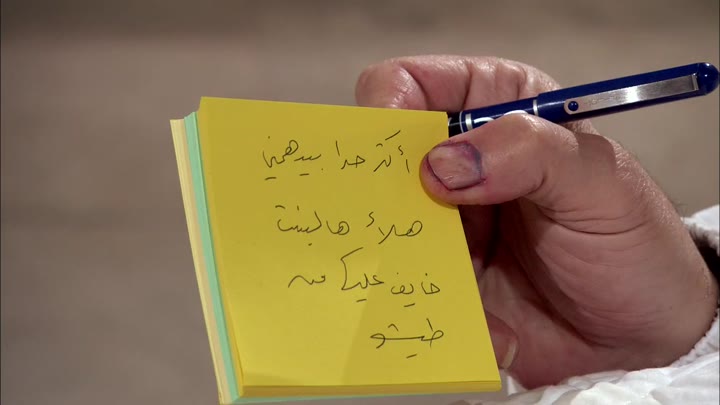 أكتر حدا بيهمني
هلأ هالبنت
خايف عليكي من
طيشو